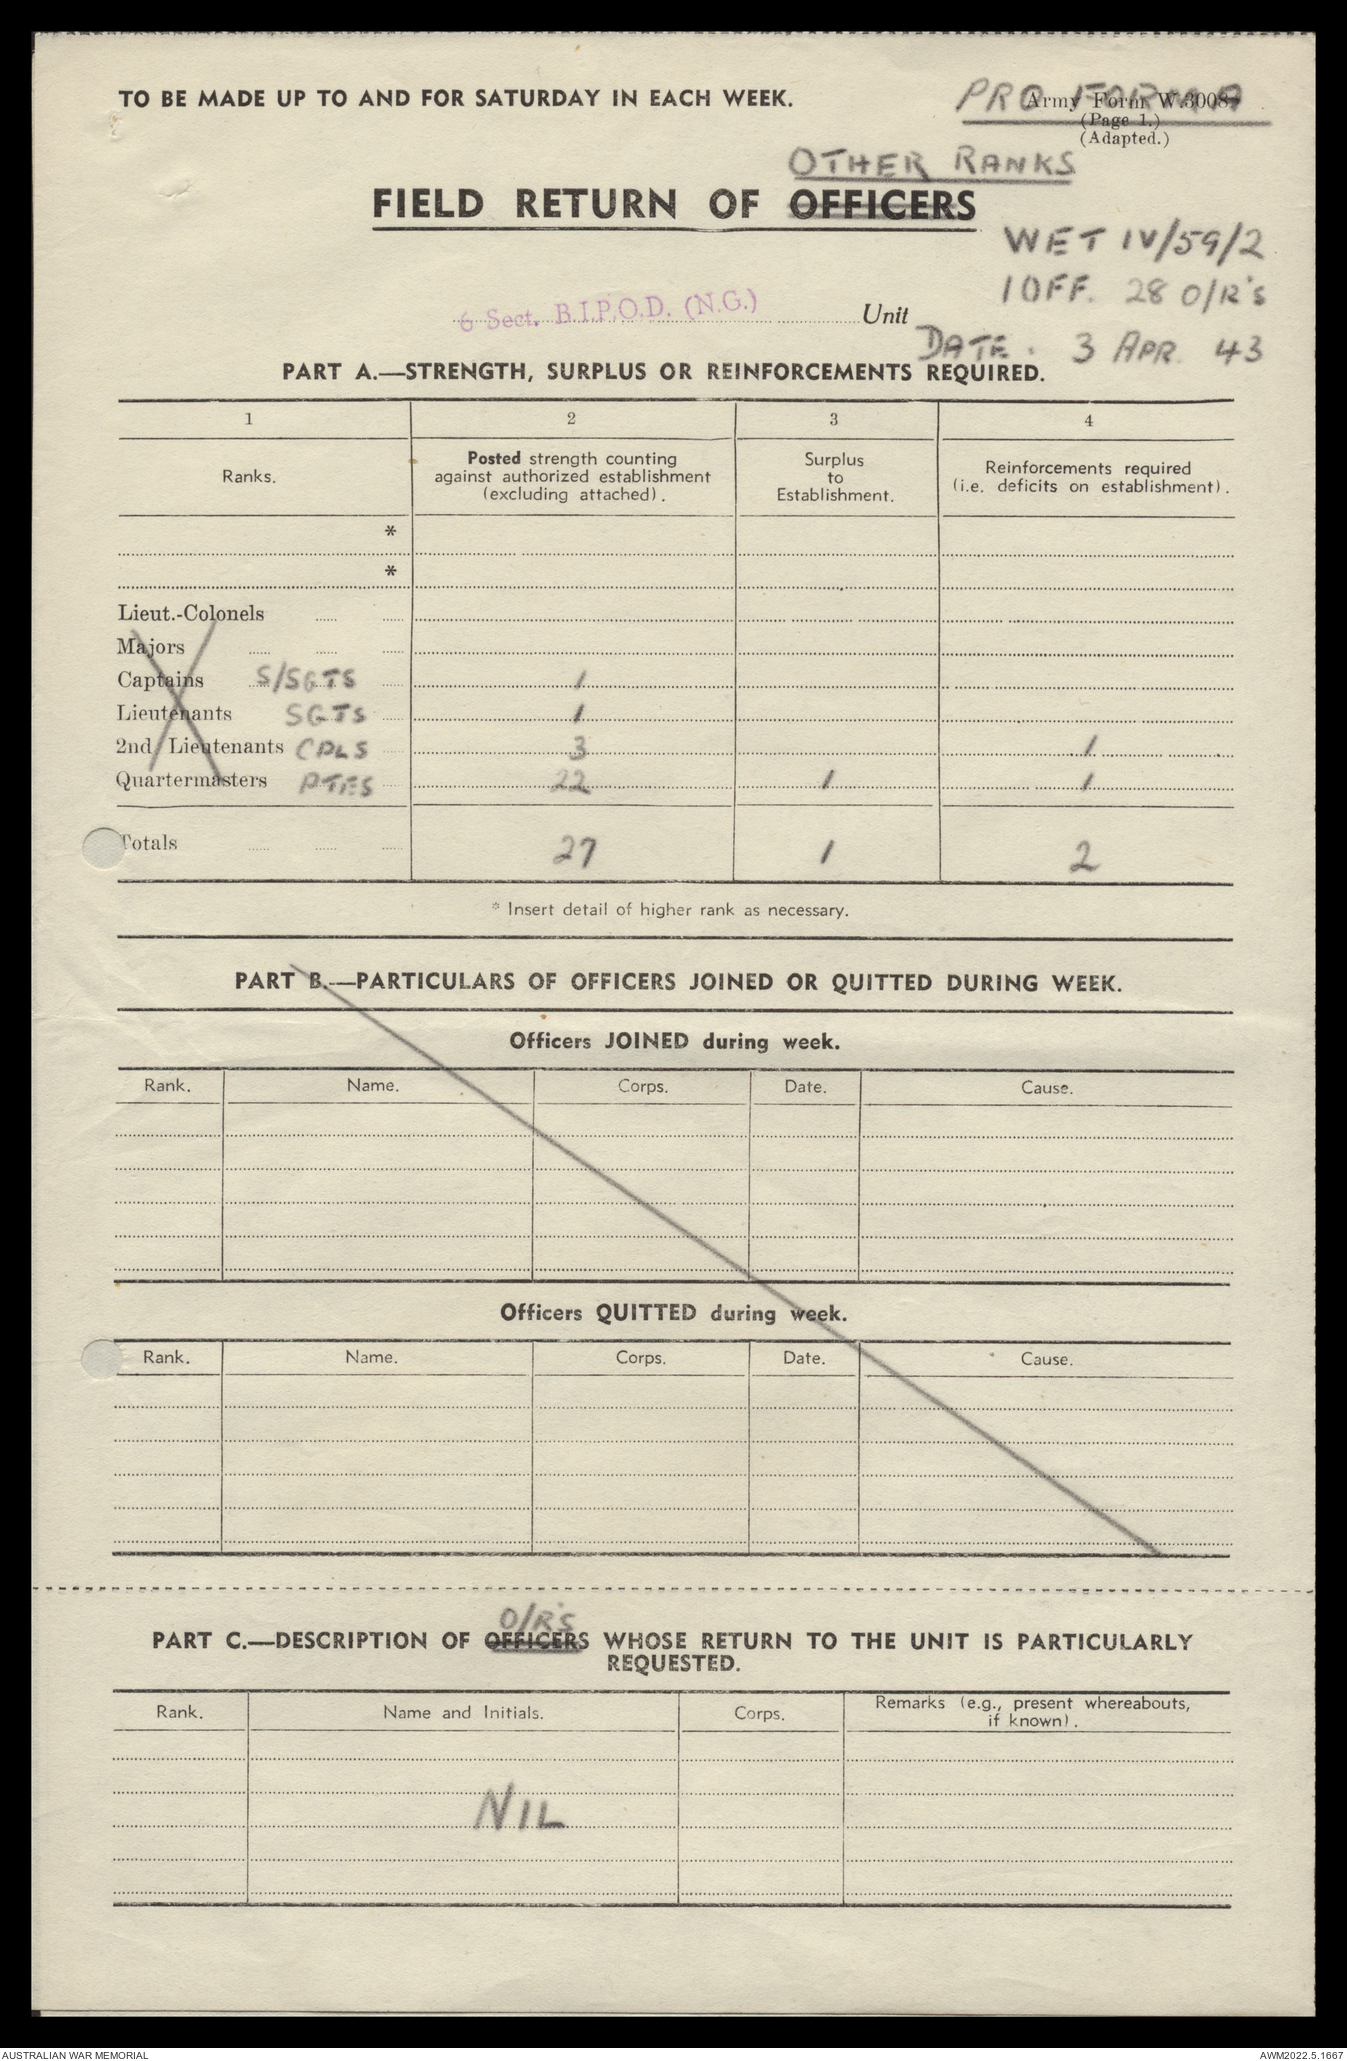 TO BE MADE UP TO AND FOR SATURDAY IN EACH WEEK.
PRO FORMA
Army Form W.3008
(Page 1.)
(Adapted.)
OTHER RANKS
FIELD RETURN OF OFFICERS
WET IV/59/2
1 OFF. 28 O/R's
6 Sect. B.I.P.O.D. (N.G.) Unit
DATE. 3 APR. 43
PART A.—STRENGTH, SURPLUS OR REINFORCEMENTS REQUIRED.
1 2 3 4
Ranks. Posted strength counting against authorized establishment (excluding attached). Surplus to Establishment. Reinforcements required (i.e. deficits on establishment).
*
*
Lieut.-Colonels
Majors
Captains S/SGTS 1
Lieutenants SGTS 1
2nd Lieutenants CPLS 3 1
Quartermasters PTES 22 1 1
Totals 27 1 2
* Insert detail of higher rank as necessary.
PART B.—PARTICULARS OF OFFICERS JOINED OR QUITTED DURING WEEK.
Officers JOINED during week.
Rank. Name. Corps. Date. Cause.
Officers QUITTED during week.
Rank. Name. Corps. Date. Cause.
O/R'S
PART C.—DESCRIPTION OF OFFICERS WHOSE RETURN TO THE UNIT IS PARTICULARLY
REQUESTED.
Rank. Name and Initials. Corps. Remarks (e.g., present whereabouts, if known).
NIL
AUSTRALIAN WAR MEMORIAL
AWM2022.5.1667